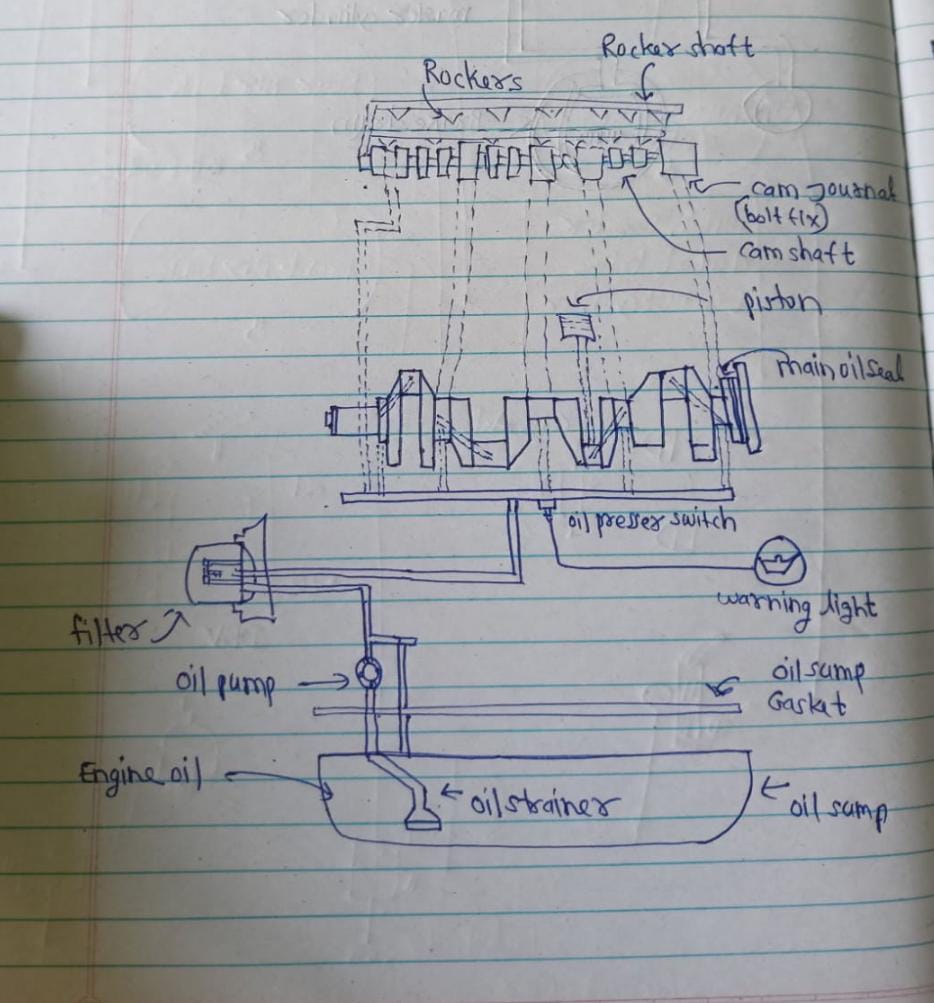 Rocker shaft
Rockers
cam Journal
(bolt fix)
camshaft
piston
main oil Seal
oil presser switch
warning light
filter
oil pump
oil sump
Gasket
Engine oil
oil strainer
oil sump